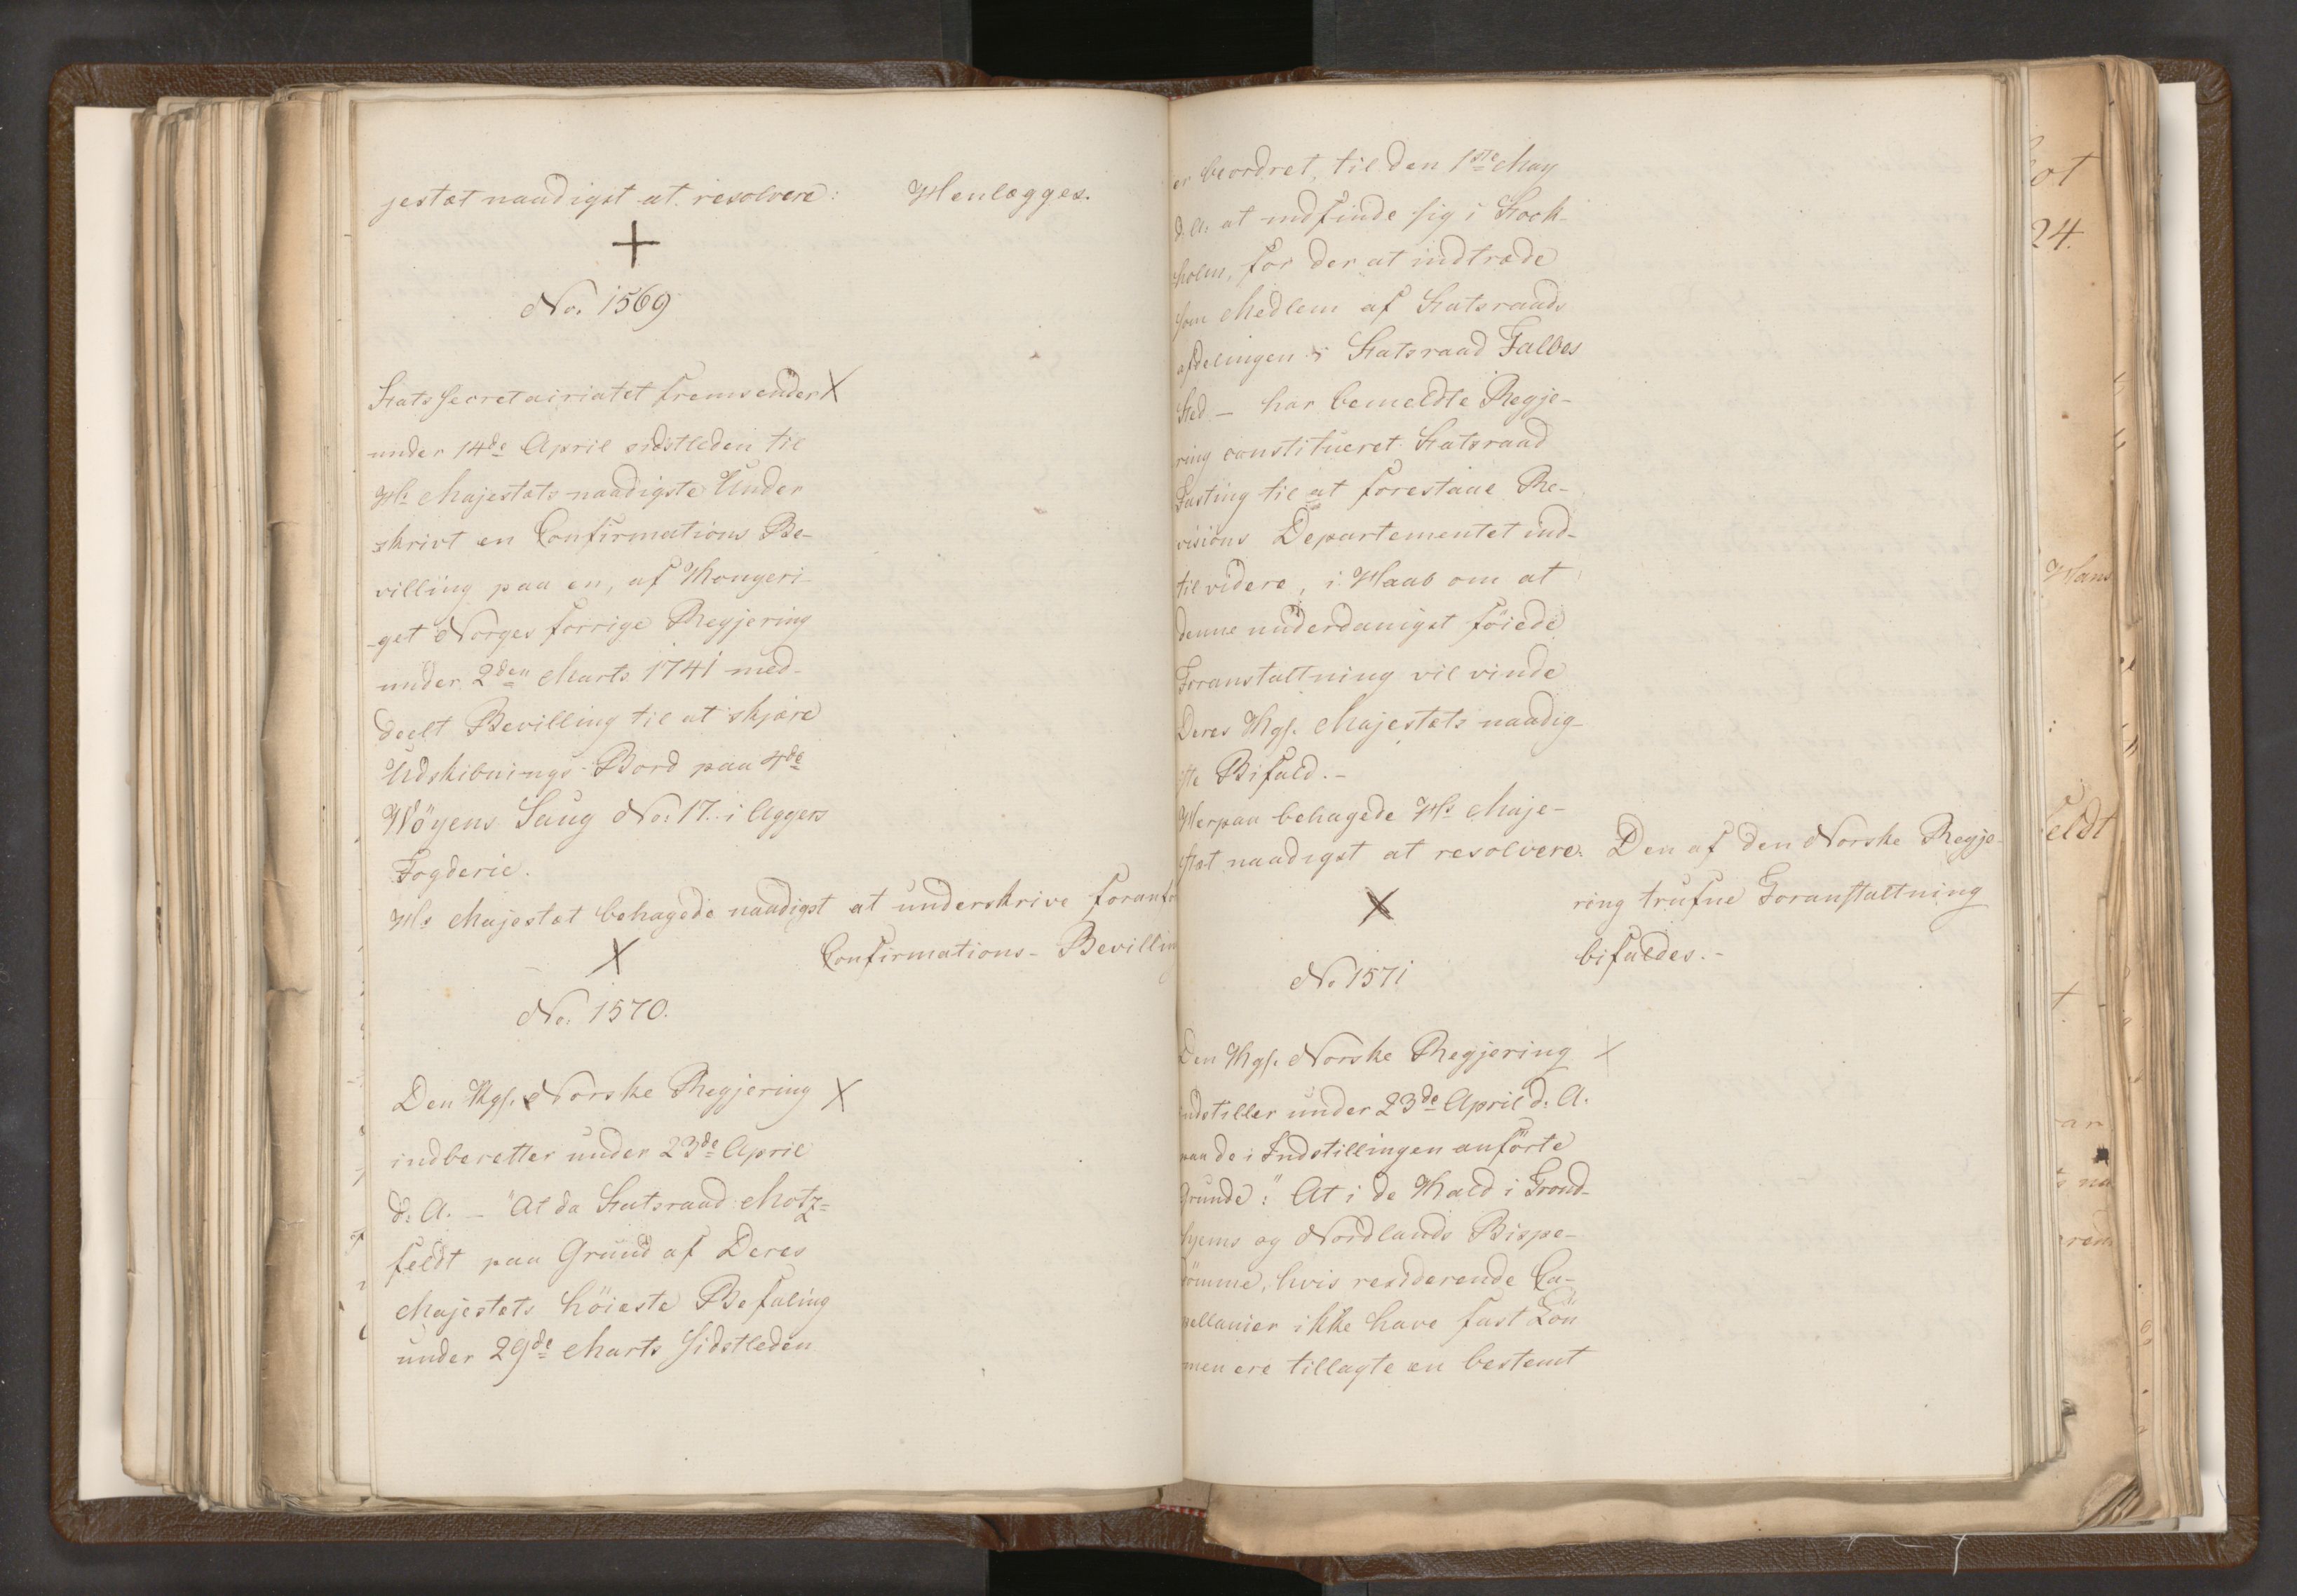 jestæt naadigst at resolvere: Henlægges.
+
No. 1569
StatsSecretairiatet fremsender X
under 14de April sidstleden til
Hs Majestæts naadigste Under
skrivt en Confirmations Be-
villing paa en, af Kongeri-
get Norges forrige Regjering
under 2den Marts 1741 med-
deelt Bevilling til at skjære
Udskibnings-Bord paa 4de
Wöyens Saug No. 17. i Aggers
Fogderie.
Hs Majestæt behagede naadigst at underskrive foranfö
Confirmations-Bevillin
X
No. 1570.
Den Kgl. Norske Regjering X
indberetter under 23de April
d: A. – "At da Statsraad Motz=
feldt paa Grund af Deres
Majestæts höieste Befaling
under 29de Marts sidstleden
er beordret, til den 1ste May
d. A. at indfinde sig i Stock-
holm, for der at indtræde
som Medlem af Statsraads
afdelingen i Statsraad Falbes
Sted – har bemeldte Regje-
ring constitueret Statsraad
Fasting til at forestaae Re-
visions Departementet ind-
til videre, i Haab om at
denne underdanigst föiede
Foranstaltning vil vinde
Deres Kgl. Majestæts naadig-
ste Bifald. –
Herpaa behagede Hs Maje-
stæt naadigst at resolvere: Den af den Norske Regje-
ring trufne Foranstaltning
bifaldes. –
X
No 1571
Den Kgl. Norske Regjering X
indstiller under 23de April d. A.
paa de i Indstillingen anförte
Grunde: "At i de Kald i Trond-
hjems og Nordlands Bispe-
dömme, hvis residerende Ca-
pellanier ikke have fast Lön
men ere tillagte en bestemt
ot
24.
Hans
feldt